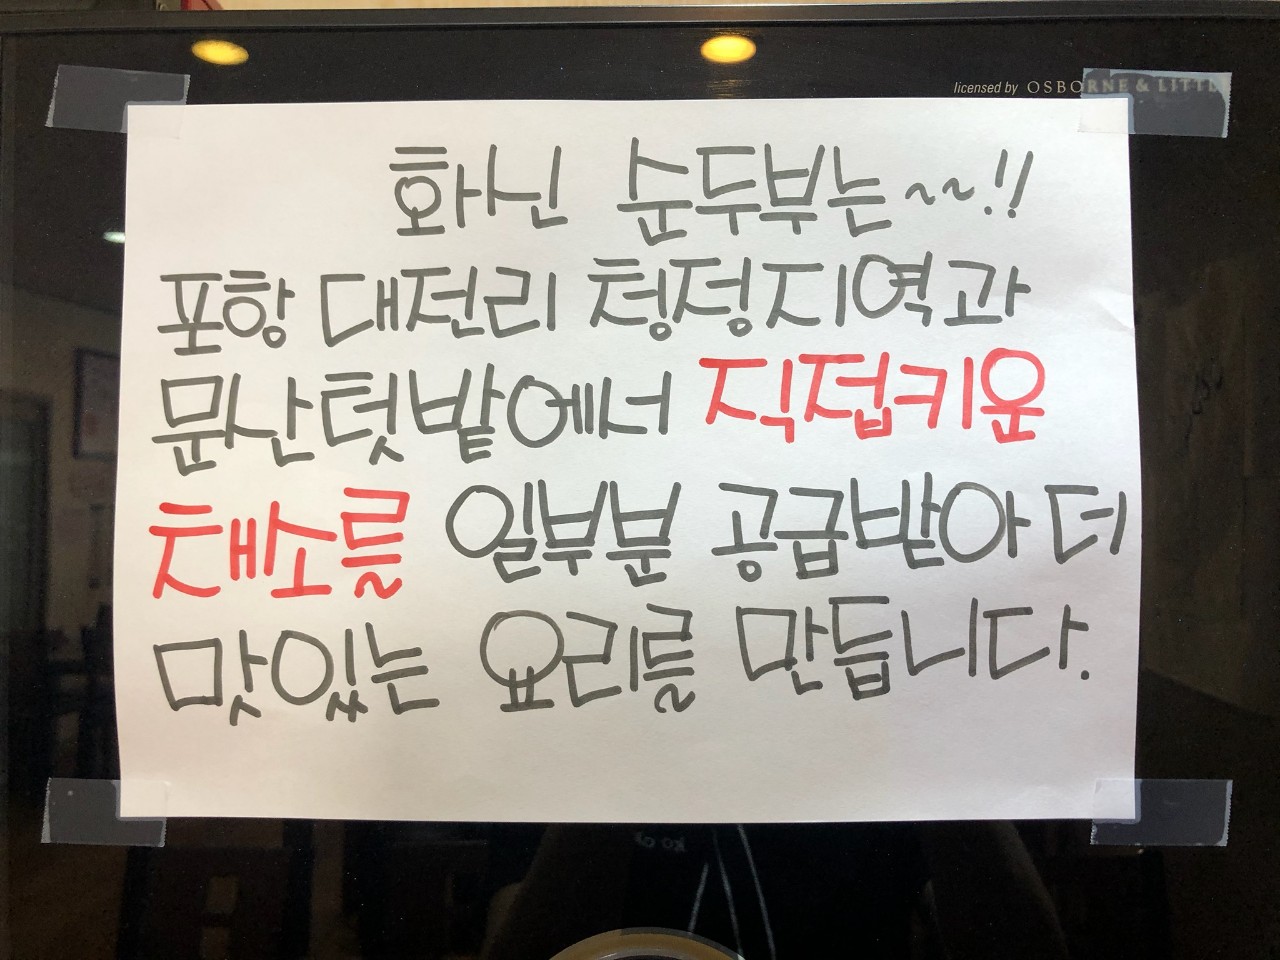 licensed by OSBORNE & LITTL
화신 순두부는~~.!!
포항 대전리 청정지역과
문산텃밭에서 직접키운
채소를 일부분 공급받아 더
맛있는 요리를 만듭니다.